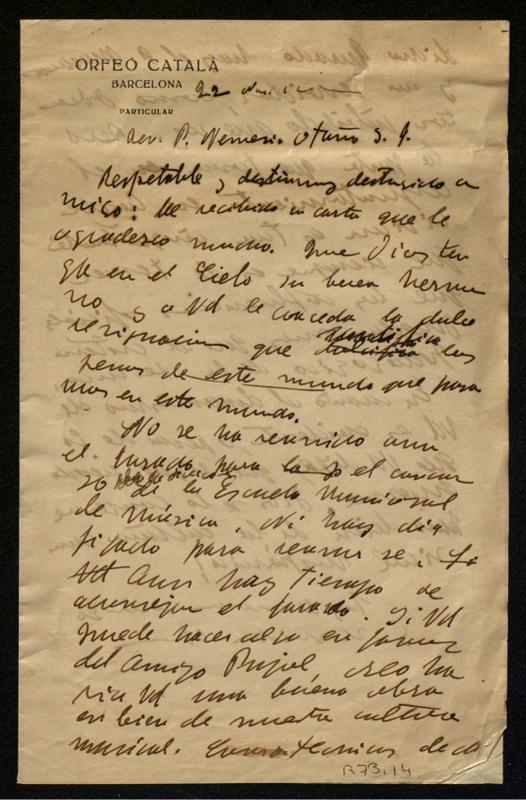 ORFEÓ CATALÀ
BARCELONA
22
PARTICULAR
Rev. P. Nemesio Otaño S. J.
Respetable y distinguido a
migo: He recibido su carta que le
agradesco mucho. Que Dios ten
ga en el Cielo su buen herma
no y a Vd le conceda la dulce
resignacion que los
penas de este mundo que pasa
mos en este mundo.
No se ha reunido aun
el Jurado para el concur
so de la Escuela Municipal
de Música. Ni hay dia
fijado para reunirse.
Aun hay tiempo de
aconsejar el jurado. Si Vd
puede hacer algo en favor
del amigo Pujol, creo ha
ria Vd una buena obra
en bien de nuestra cultura
musical. tecnicos de
R73.14